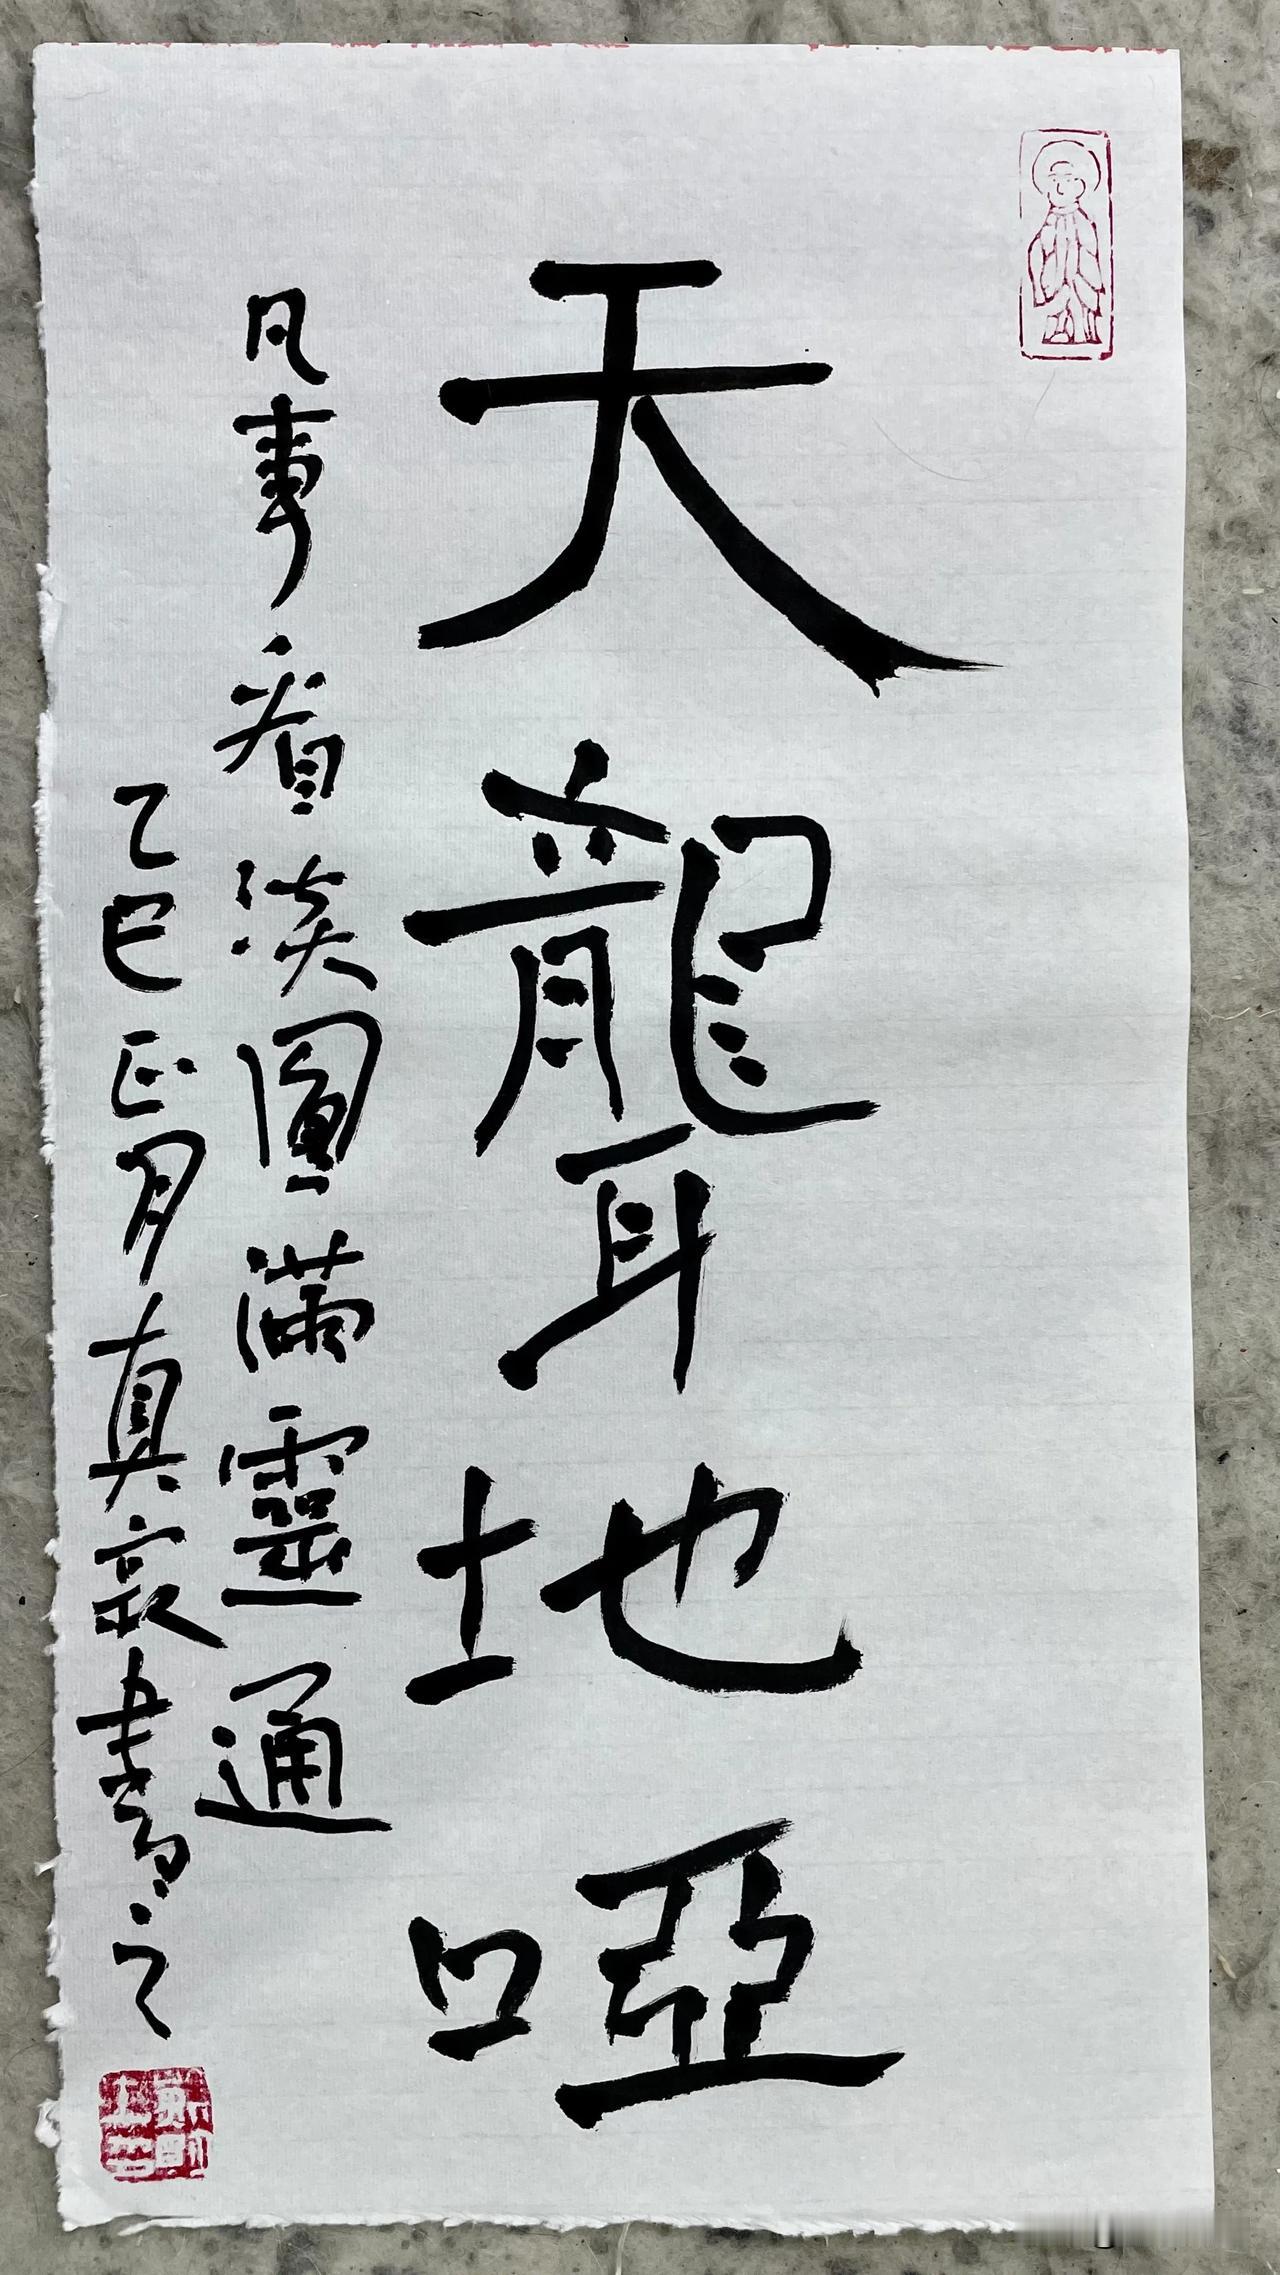 天聾地啞
凡事看淡圓滿靈通
乙巳正月真家書之